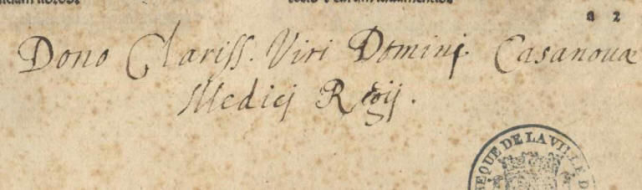 a 2
Dono Clariss. Viri Domini Casanouæ
Medicj Regij.
EQUE DE LA VILLE D